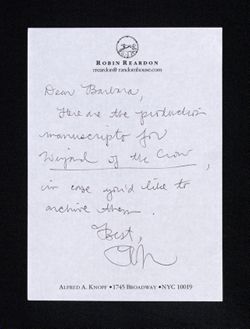 ROBIN REARDON
rreardon@randomhouse.com
Dear Barbara,
Here are the production
manuscripts for
Wizard of the Crow,
in case you'd like to
archive them.
Best,
ALFRED A. KNOPF • 1745 BROADWAY • NYC 10019